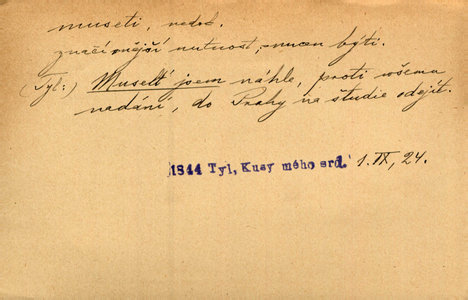 museti, nedok.
značí vnější nutnost, nucen býti.
(Tyl:) Muselť jsem náhle, proti všemu
nadání, do Prahy na studie odejít.
1844 Tyl, Kusy mého srd. 1. IX, 24.